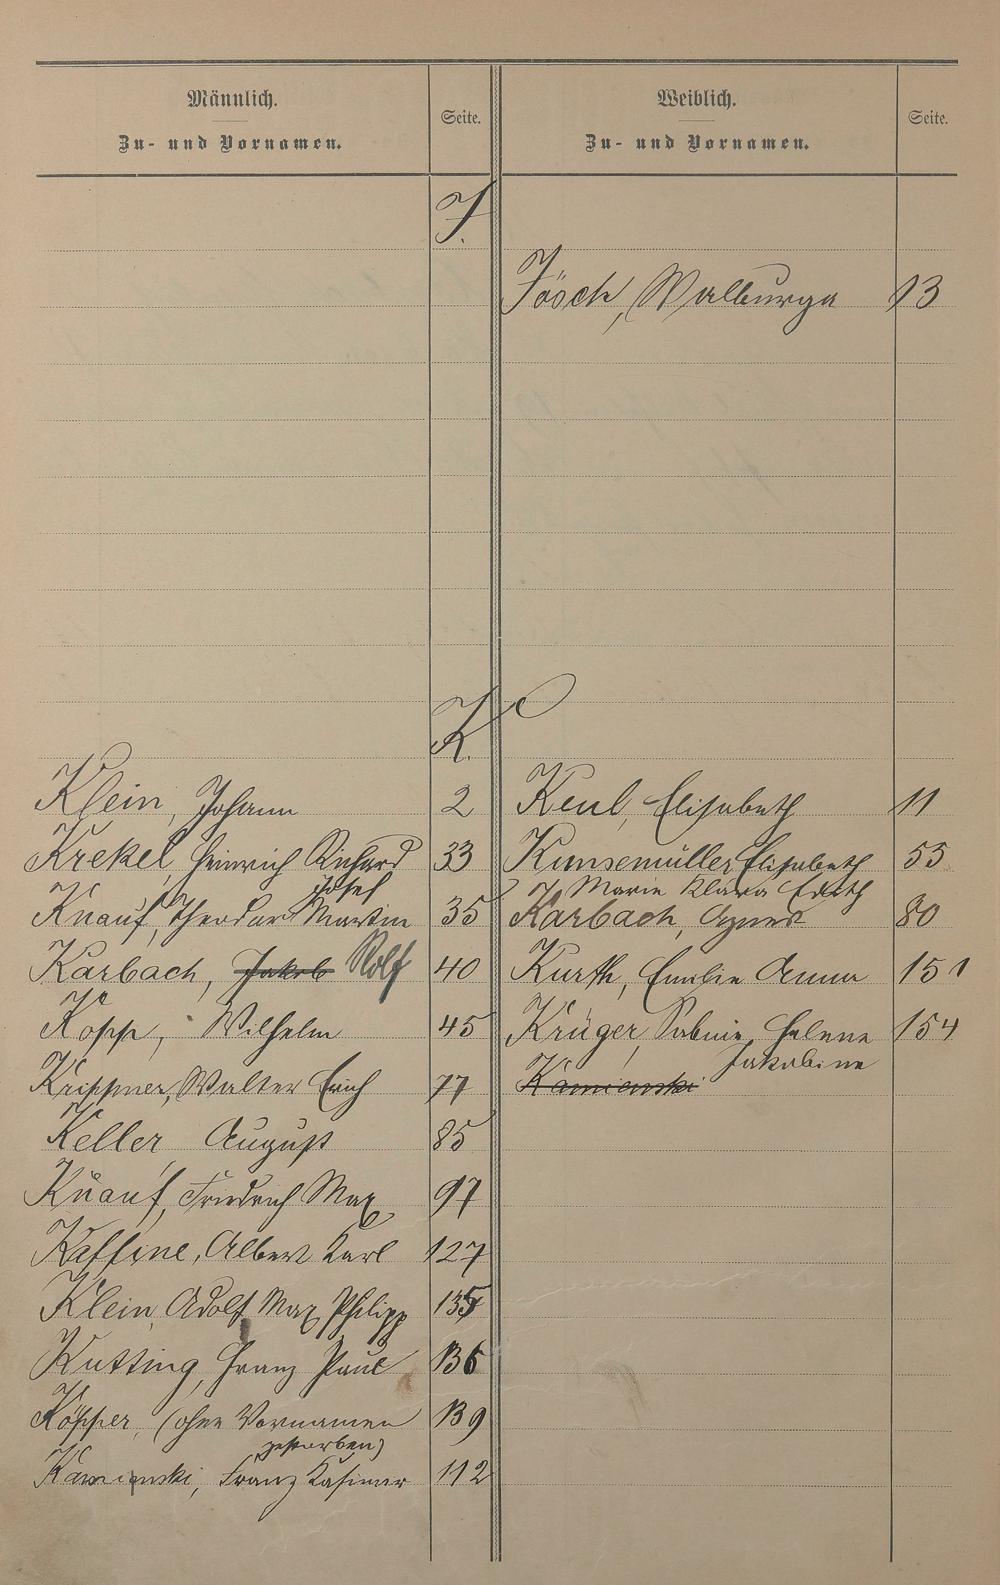 Männlich.
Zu- und Vornamen.
Seite.
Weiblich.
Zu- und Vornamen.
Seite.
J.
Jösch, Walburga 13
K.
Klein, Johann 2
Krekel, Heinrich Richard 33
Josef
Knauf, Theodor Martin 35
Karbach, Jakob Rolf 40
Kopp, Wilhelm 45
Krippner, Walter Erich 77
Keller August 85
Knauf, Friedrich Max 97
Kaffine, Albert Karl 127
Klein, Adolf Max Philipp 135
Kutting, Franz Paul 136
Köpper, (ohne Vornamen 139
gestorben)
Kamienski, Franz Kasimir 112
Keul, Elisabeth 11
Kunsemüller Elisabeth 55
Marie Klara Edith
Karbach, Agnes 80
Kurth, Emilie Anna 151
Krüger, Sabine, Helene 154
Jakobine
Kamienski